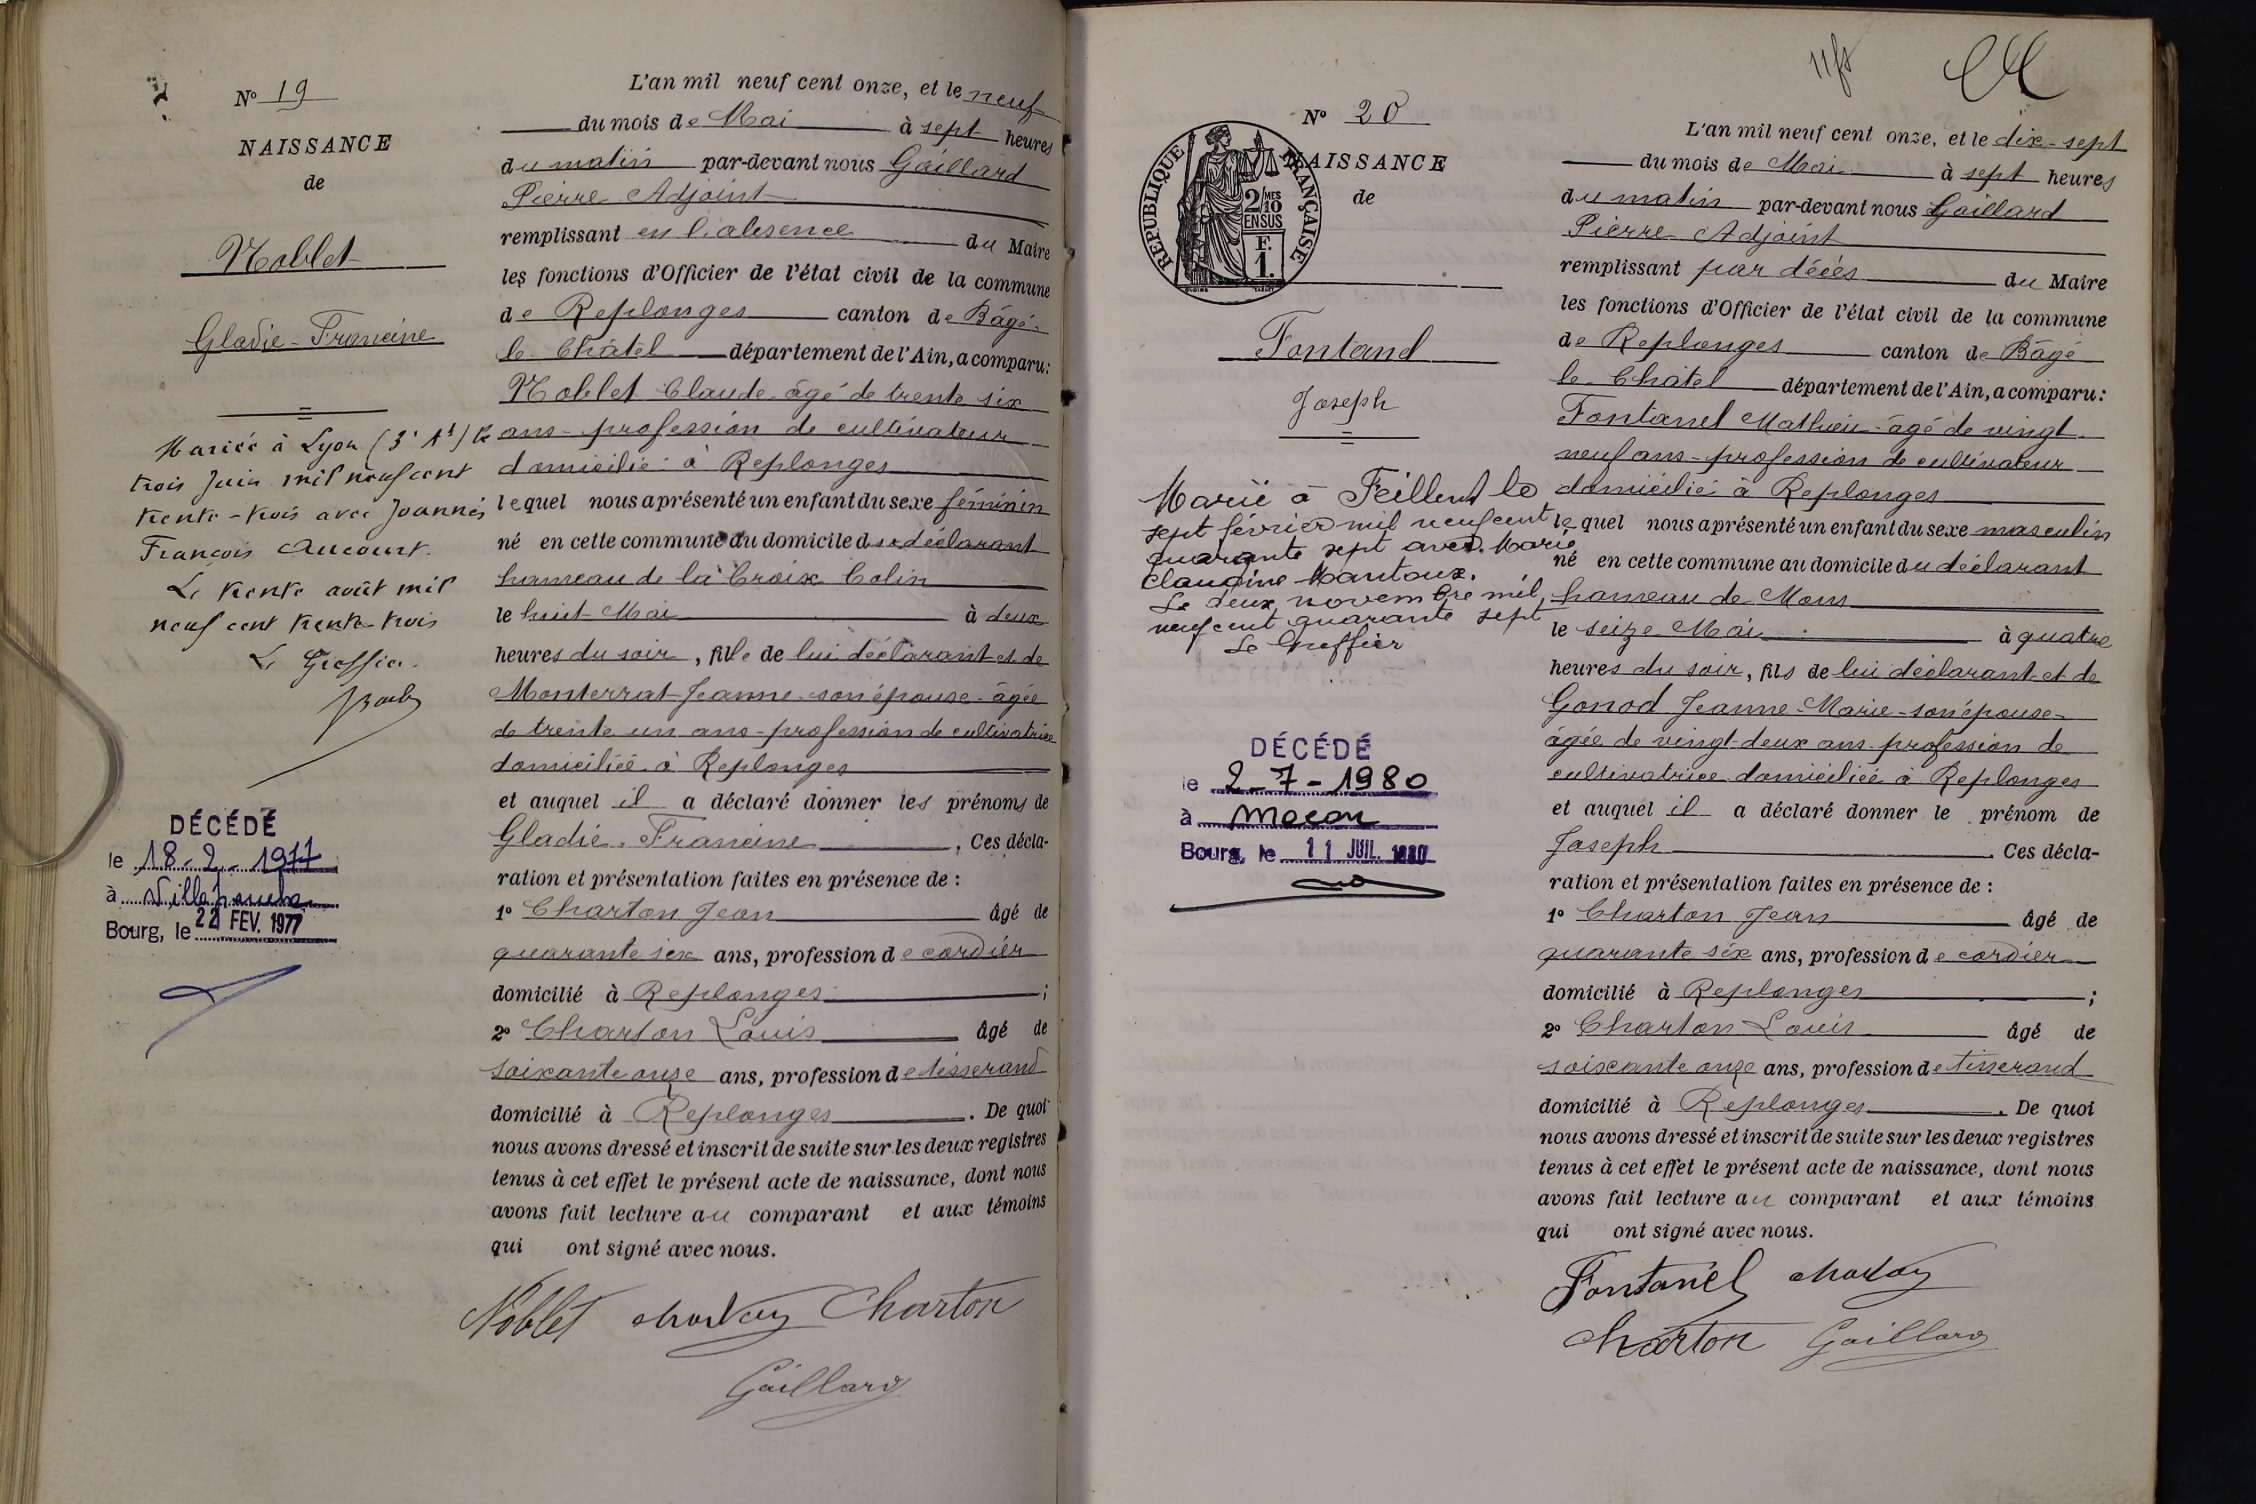 N° 19
NAISSANCE
de
Noblet
Gladie-Francine
Mariée à Lyon (3e At) le
trois Juin mil neuf cent
trente-trois avec Joannès
François Aucourt.
Le trente août mil
neuf cent trente-trois
Le Greffier.
DÉCÉDÉ
le 18-2-1977
à Villefranche
Bourg, le 22 FEV. 1977
L'an mil neuf cent onze, et le neuf
du mois de Mai à sept heures
du matin par-devant nous Gaillard
Pierre Adjoint
remplissant en l'absence du Maire
les fonctions d'Officier de l'état civil de la commune
de Replonges canton de Bâgé-
le-Châtel département de l'Ain, a comparu:
Noblet Claude âgé de trente six
ans-profession de cultivateur
domicilié à Replonges
lequel nous a présenté un enfant du sexe féminin
né en cette commune au domicile du déclarant
hameau de la Croix Colin
le huit Mai à deux
heures du soir, fille de lui déclarant et de
Monterrat Jeanne-son épouse-âgée
de trente un ans-profession de cultivatrice
domiciliée à Replonges
et auquel il a déclaré donner les prénoms de
Gladie-Francine. Ces décla-
ration et présentation faites en présence de :
1° Charton Jean âgé de
quarante six ans, profession de cordier
domicilié à Replonges ;
2° Charton Louis âgé de
soixante onze ans, profession de tisserand
domicilié à Replonges. De quoi
nous avons dressé et inscrit de suite sur les deux registres
tenus à cet effet le présent acte de naissance, dont nous
avons fait lecture au comparant et aux témoins
qui ont signé avec nous.
Noblet Charton Charton
Gaillard
N° 20
NAISSANCE
de
REPUBLIQUE FRANÇAISE
2/10 MES
EN SUS
F.
1.
Fontand
Joseph
Marié à Feillens le
sept février mil neuf cent
quarante sept avec Marie
Claudine Mantoux.
Le deux novembre mil
neuf cent quarante sept
Le Greffier
DÉCÉDÉ
le 2-7-1980
à Macon
Bourg, le 11 JUIL. 1980
L'an mil neuf cent onze, et le dix-sept
du mois de Mai à sept heures
du matin par-devant nous Gaillard
Pierre Adjoint
remplissant par décès du Maire
les fonctions d'Officier de l'état civil de la commune
de Replonges canton de Bâgé
le-Châtel département de l'Ain, a comparu:
Fontanel Mathieu-âgé de vingt
neuf ans-profession de cultivateur
domicilié à Replonges
lequel nous a présenté un enfant du sexe masculin
né en cette commune au domicile du déclarant
hameau de Mons
le seize Mai à quatre
heures du soir, fils de lui déclarant et de
Gonod Jeanne-Marie-son épouse-
âgée de vingt-deux ans profession de
cultivatrice domiciliée à Replonges
et auquel il a déclaré donner le prénom de
Joseph. Ces décla-
ration et présentation faites en présence de :
1° Charton Jean âgé de
quarante six ans, profession de cordier
domicilié à Replonges ;
2° Charton Louis âgé de
soixante onze ans, profession de tisserand
domicilié à Replonges. De quoi
nous avons dressé et inscrit de suite sur les deux registres
tenus à cet effet le présent acte de naissance, dont nous
avons fait lecture au comparant et aux témoins
qui ont signé avec nous.
Fontanel Charton
Charton Gaillard